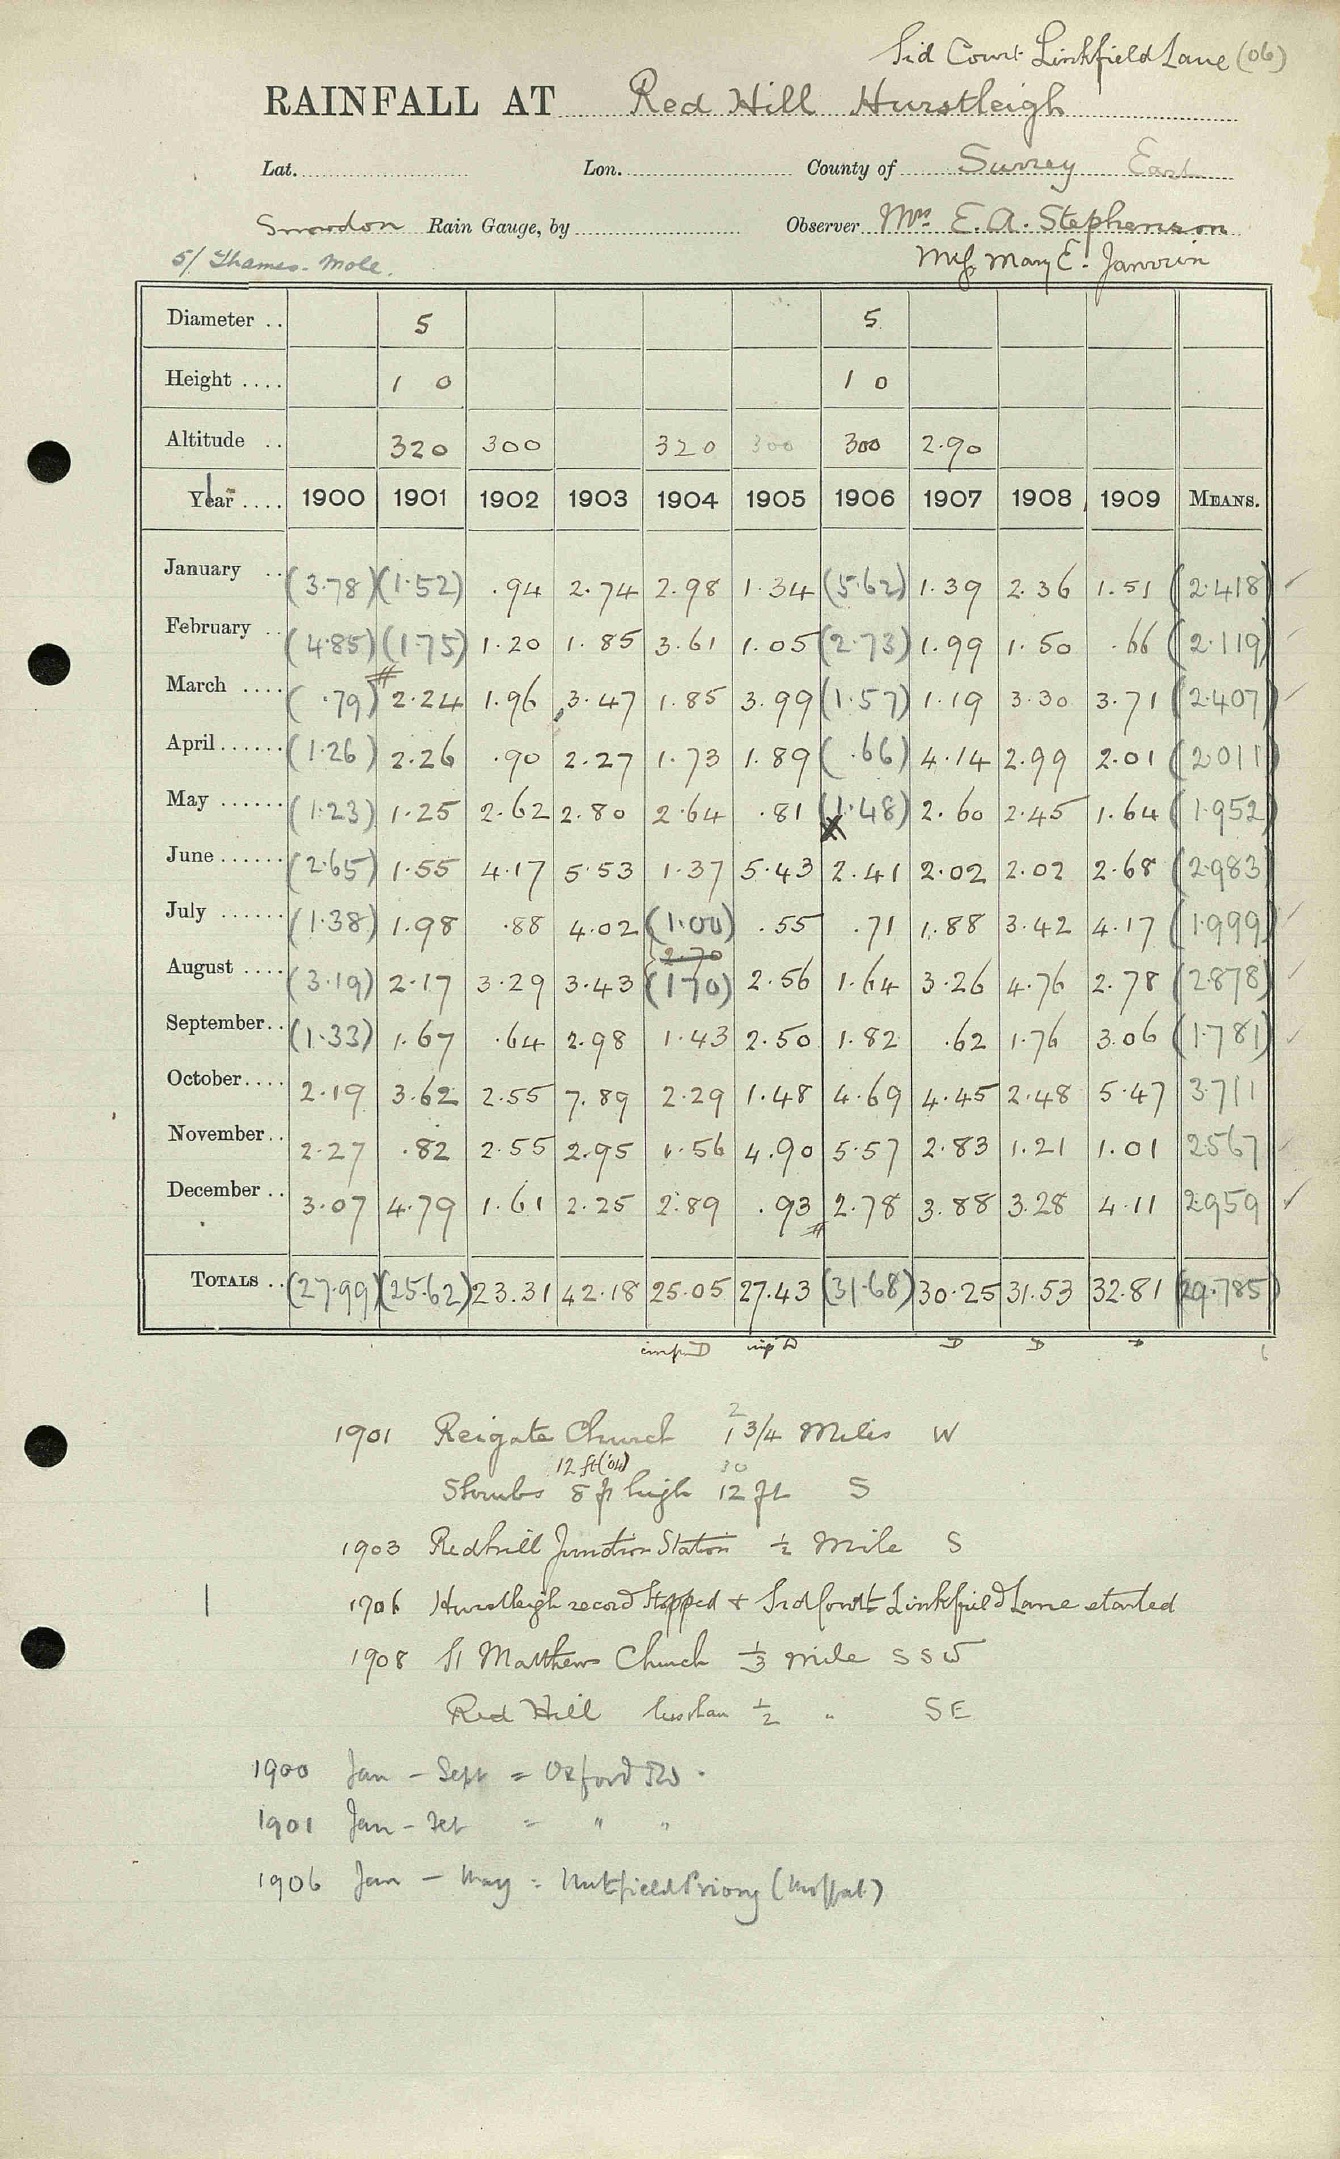 Sid Court Linkfield Lane (06)
RAINFALL AT Red Hill Hurstleigh
Lat. Lon. County of Surrey East
Snowdon Rain Gauge, by Observer Mrs E. A. Stephenson
5/ Thames. Mole. Miss Mary E. Janvrin
Diameter .. 5 5
Height .... 1 0 1 0
Altitude .. 320 300 320 300 300 2.90
Year .... 1900 1901 1902 1903 1904 1905 1906 1907 1908 1909 MEANS.
January .. (3.78) (1.52) .94 2.74 2.98 1.34 (5.62) 1.39 2.36 1.51 (2.418)
February .. (4.85) (1.75) 1.20 1.85 3.61 1.05 (2.73) 1.99 1.50 .66 (2.119)
March .... ( .79) 2.24 1.96 3.47 1.85 3.99 (1.57) 1.19 3.30 3.71 (2.407)
April ...... (1.26) 2.26 .90 2.27 1.73 1.89 ( .66) 4.14 2.99 2.01 (2.011)
May ...... (1.23) 1.25 2.62 2.80 2.64 .81 (1.48) 2.60 2.45 1.64 (1.952)
June ...... (2.65) 1.55 4.17 5.53 1.37 5.43 2.41 2.02 2.02 2.68 (2.983)
July ...... (1.38) 1.98 .88 4.02 (1.00) .55 .71 1.88 3.42 4.17 (1.999)
2.70
August .... (3.19) 2.17 3.29 3.43 (1.70) 2.56 1.64 3.26 4.76 2.78 (2.878)
September.. (1.33) 1.67 .64 2.98 1.43 2.50 1.82 .62 1.76 3.06 (1.781)
October.... 2.19 3.62 2.55 7.89 2.29 1.48 4.69 4.45 2.48 5.47 3.711
November.. 2.27 .82 2.55 2.95 1.56 4.90 5.57 2.83 1.21 1.01 2.567
December .. 3.07 4.79 1.61 2.25 2.89 .93 2.78 3.88 3.28 4.11 2.959
TOTALS .. (27.99) (25.62) 23.31 42.18 25.05 27.43 (31.68) 30.25 31.53 32.81 (29.785)
imp D imp D D D D
1901 Reigate Church 1 3/4 Miles W
12 ft ('04) 30
Shrubs 8 ft high 12 ft S
1903 Redhill Junction Station 1/2 Mile S
1906 Hurstleigh record stopped + Sid Court Linkfield Lane started
1908 St Matthews Church 1/3 mile SSW
Red Hill less than 1/2 " SE
1900 Jan - Sept = Oxford Rd.
1901 Jan - Feb = " "
1906 Jan - May = Nutfield Priory (Moffat)